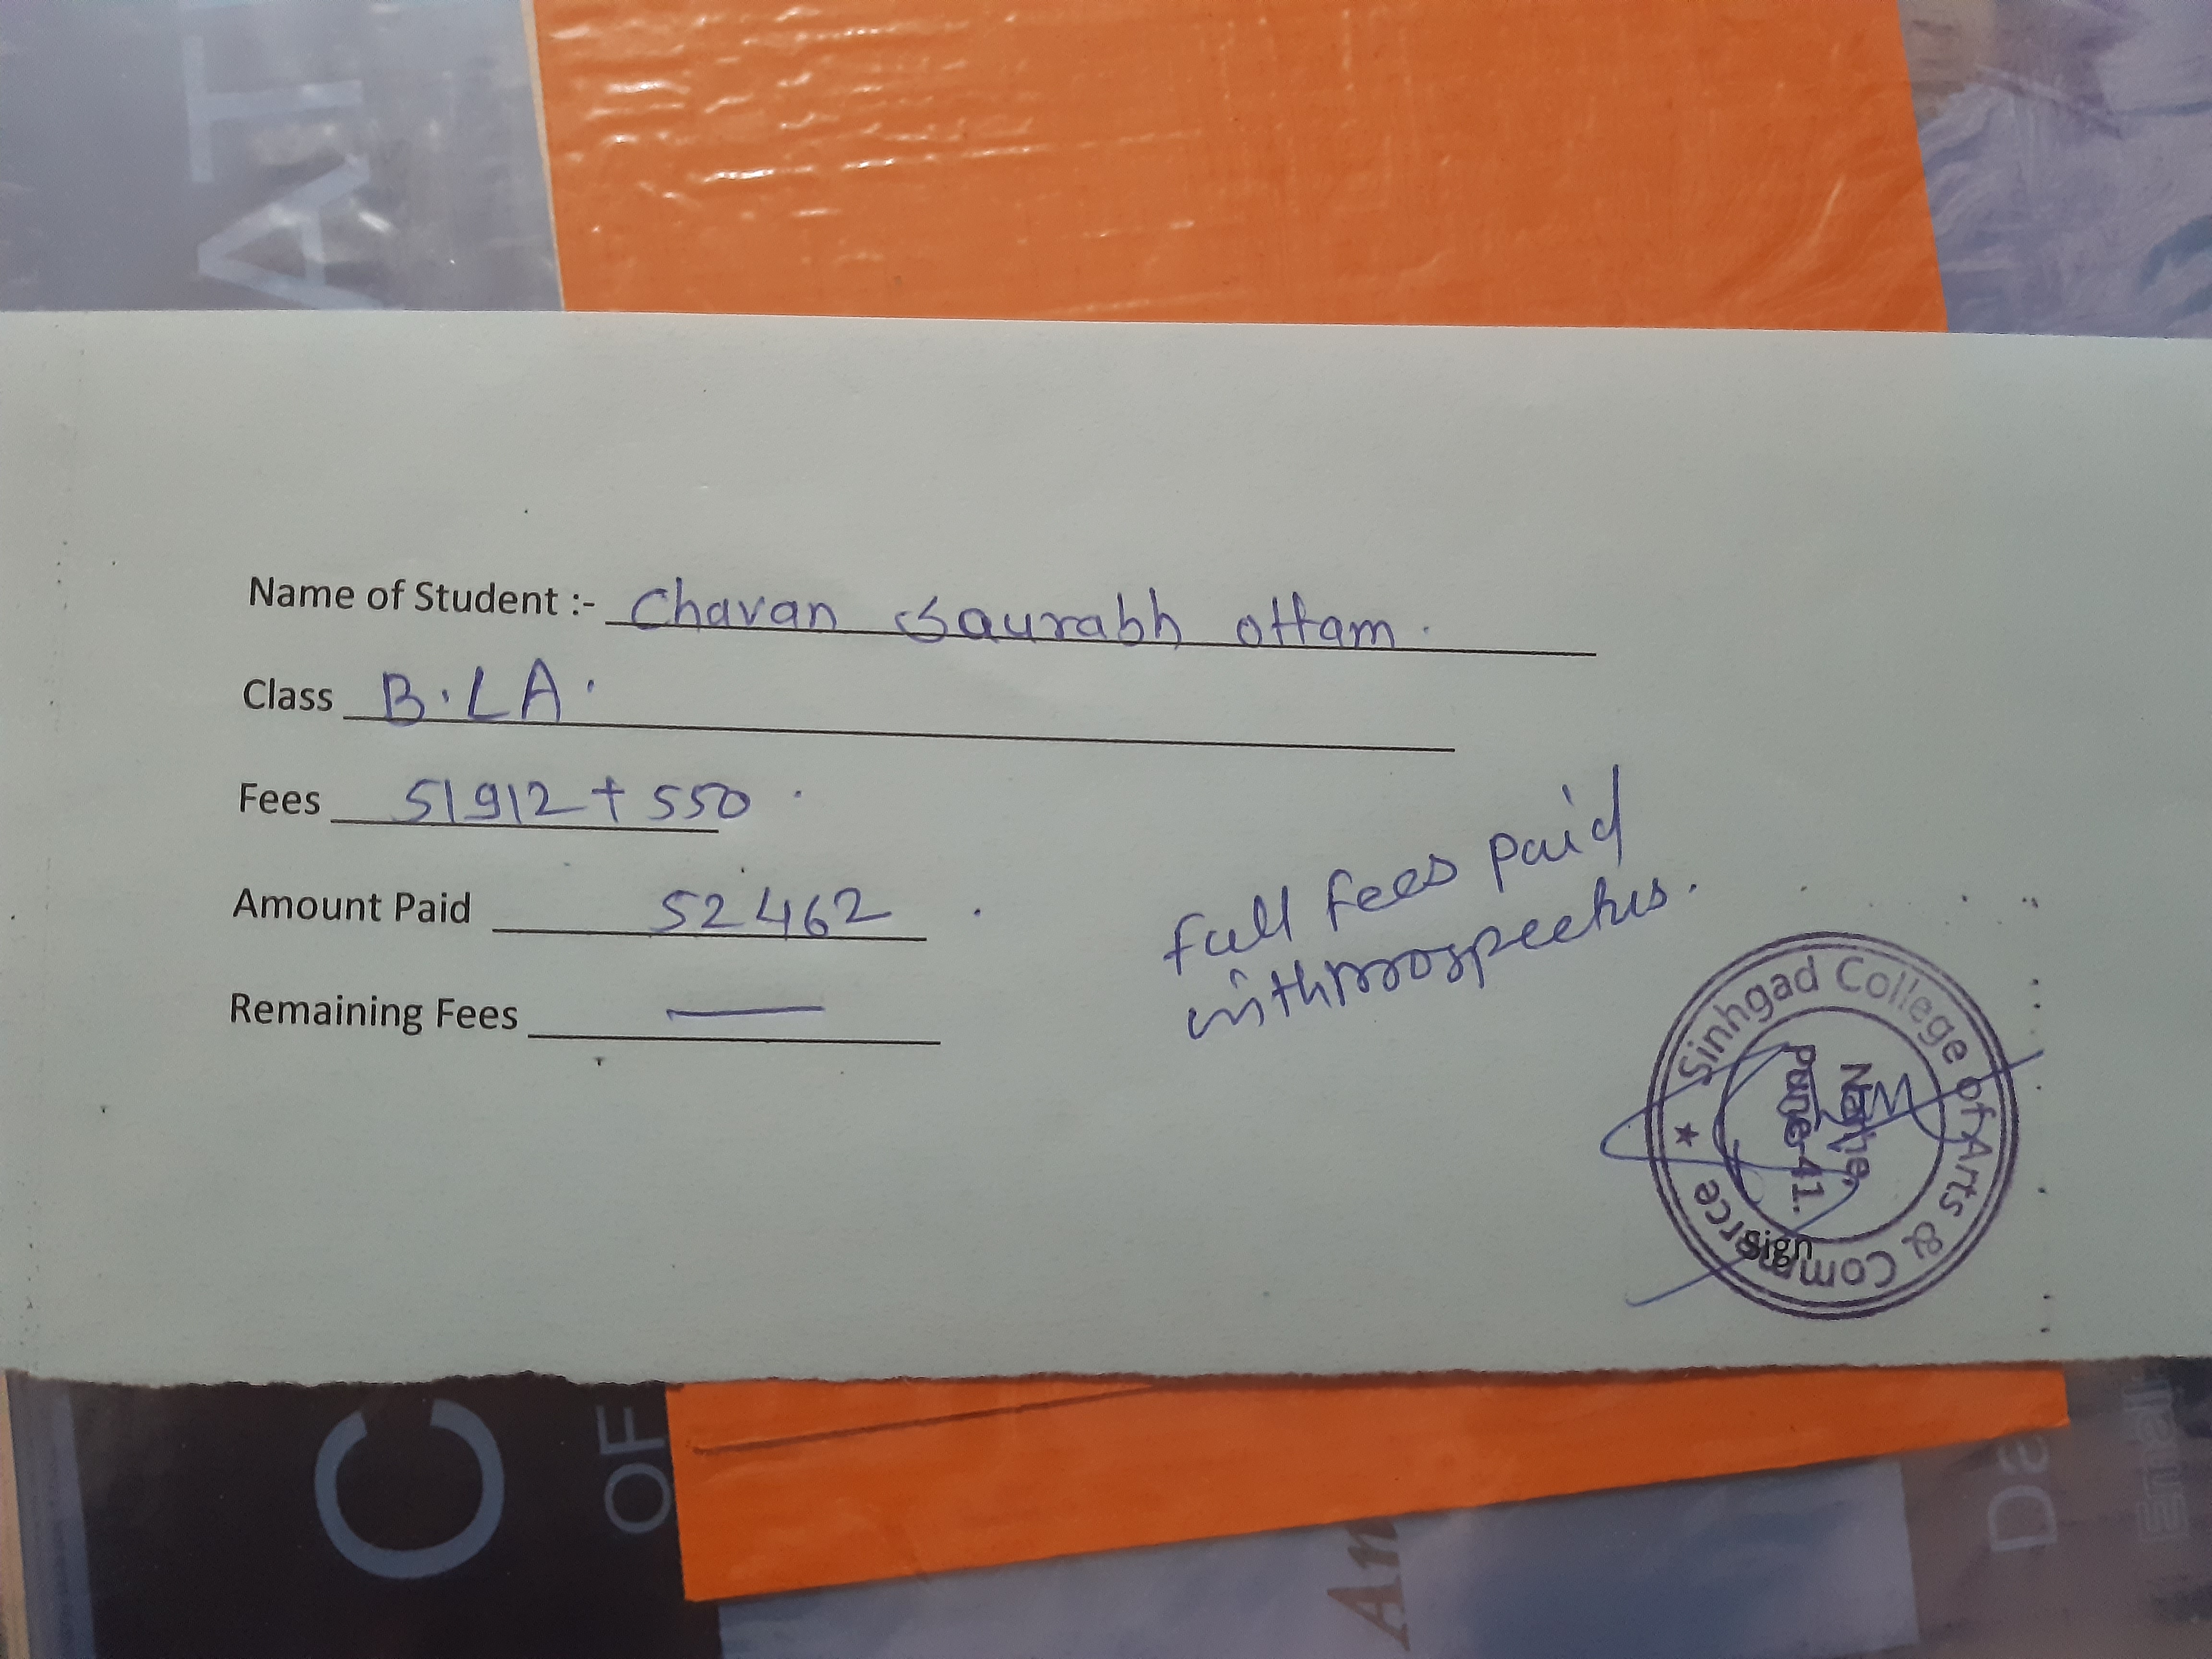 AT
Name of Student :- Chavan Saurabh ottam.
Class B.LA.
Fees 51912 + 550
Amount Paid 52462
Remaining Fees —
full fees paid
with prospectus.
Sinhgad College of Arts & Commerce ★
Narhe,
Pune-41.
Sign
C
OF
An
Da
Email